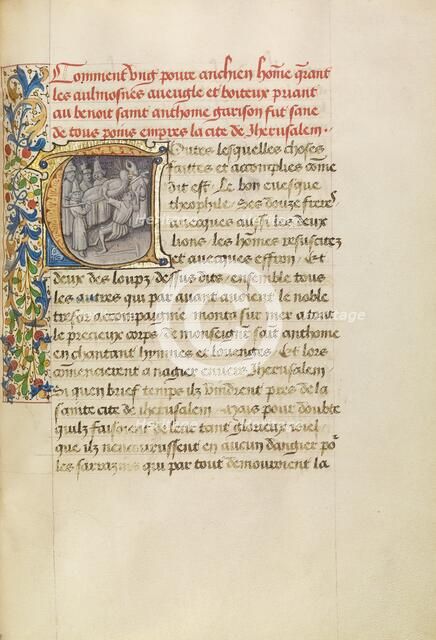 Comment vng poure anchien home querant
les aulmosnes aueugle et boiteux priant
au benoit saint anthoine garison fut sane
de tous poins empres la cite de Jherusalem.
Outes lesquelles choses
faittes et accomplies come
dit est. Le bon euesque
theophile. Ses douze freres
auecques aussi les deux
lions. les homes resuscitez
et auecques effron. Et
deux des loupz dessus dits. ensemble tous
les autres qui par auant auoient le noble
tresor acompaigne monta sur mer a tout
le precieux corps de monseigneur saint anthoine
en chantant hympnes et louenges. Et lors
comencierent a nagier enuers Jherusalem
Si quen brief temps ilz vindrent pres de la
sainte cite de iherusalem. Mais pour doubte
quilz faisoient de leur tant glorieux ioiel
que ilz nencourussent en aucun dangier por
les sarrazins qui par tout demouroient la
heritage